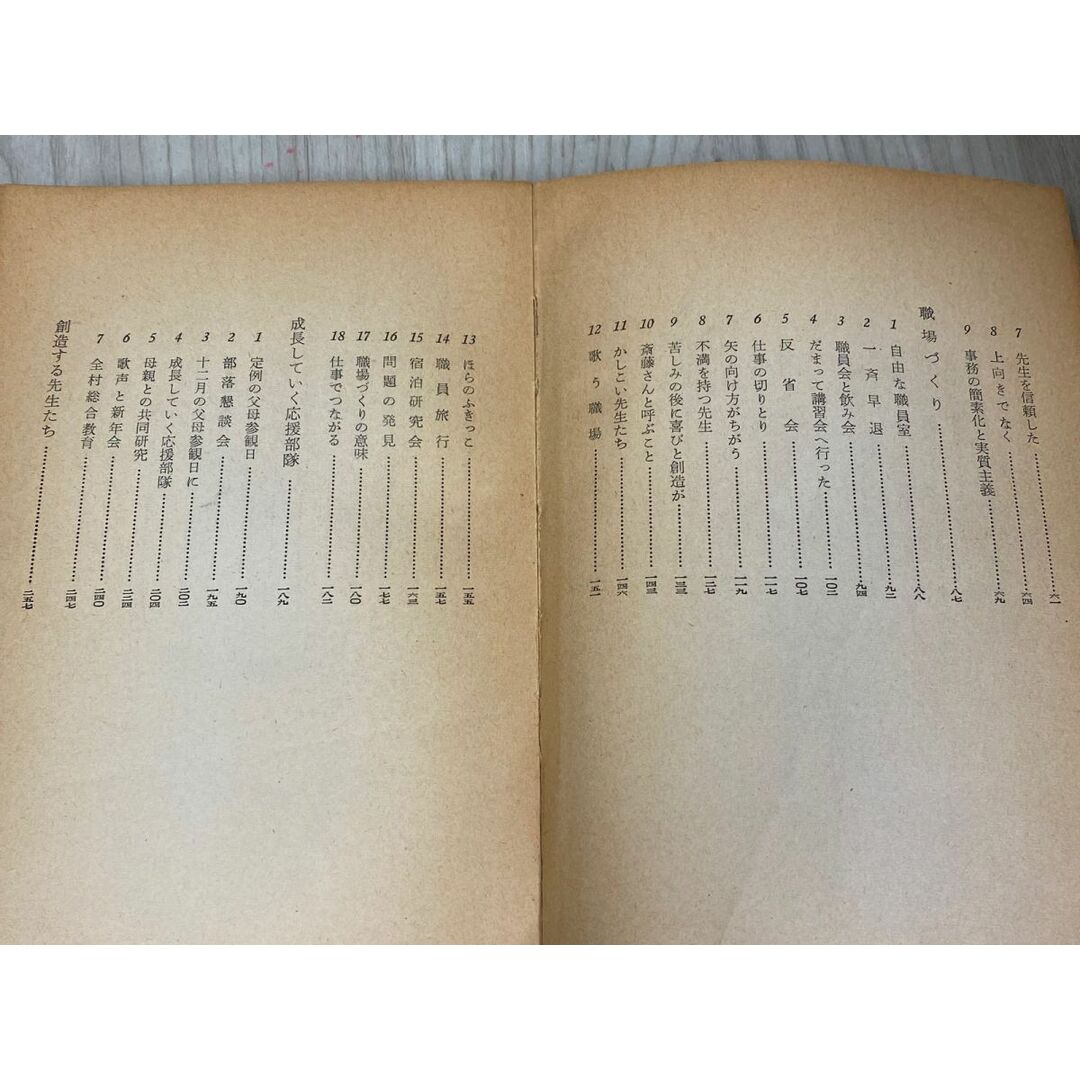 7 先生を信頼した……六一
8 上向きでなく……六四
9 事務の簡素化と実質主義……六九
職場づくり……八七
1 自由な職員室……八八
2 一斉早退……九二
3 職員会と飲み会……九四
4 だまって講習会へ行った……一〇二
5 反省会……一〇七
6 仕事の切りとり……一一七
7 矢の向け方がちがう……一一九
8 不満を持つ先生……一二七
9 苦しみの後に喜びと創造が……一三三
10 斎藤さんと呼ぶこと……一四三
11 かしこい先生たち……一四六
12 歌う職場……一五一
13 ほらのふきっこ……一五五
14 職員旅行……一五七
15 宿泊研究会……一六三
16 問題の発見……一七七
17 職場づくりの意味……一八〇
18 仕事でつながる……一八二
成長していく応援部隊……一八九
1 定例の父母参観日……一九〇
2 部落懇談会……一九五
3 十二月の父母参観日に……二〇二
4 成長していく応援部隊……二〇四
5 母親との共同研究……
6 歌声と新年会……二三四
7 全村総合教育……二四〇
創造する先生たち……二五七